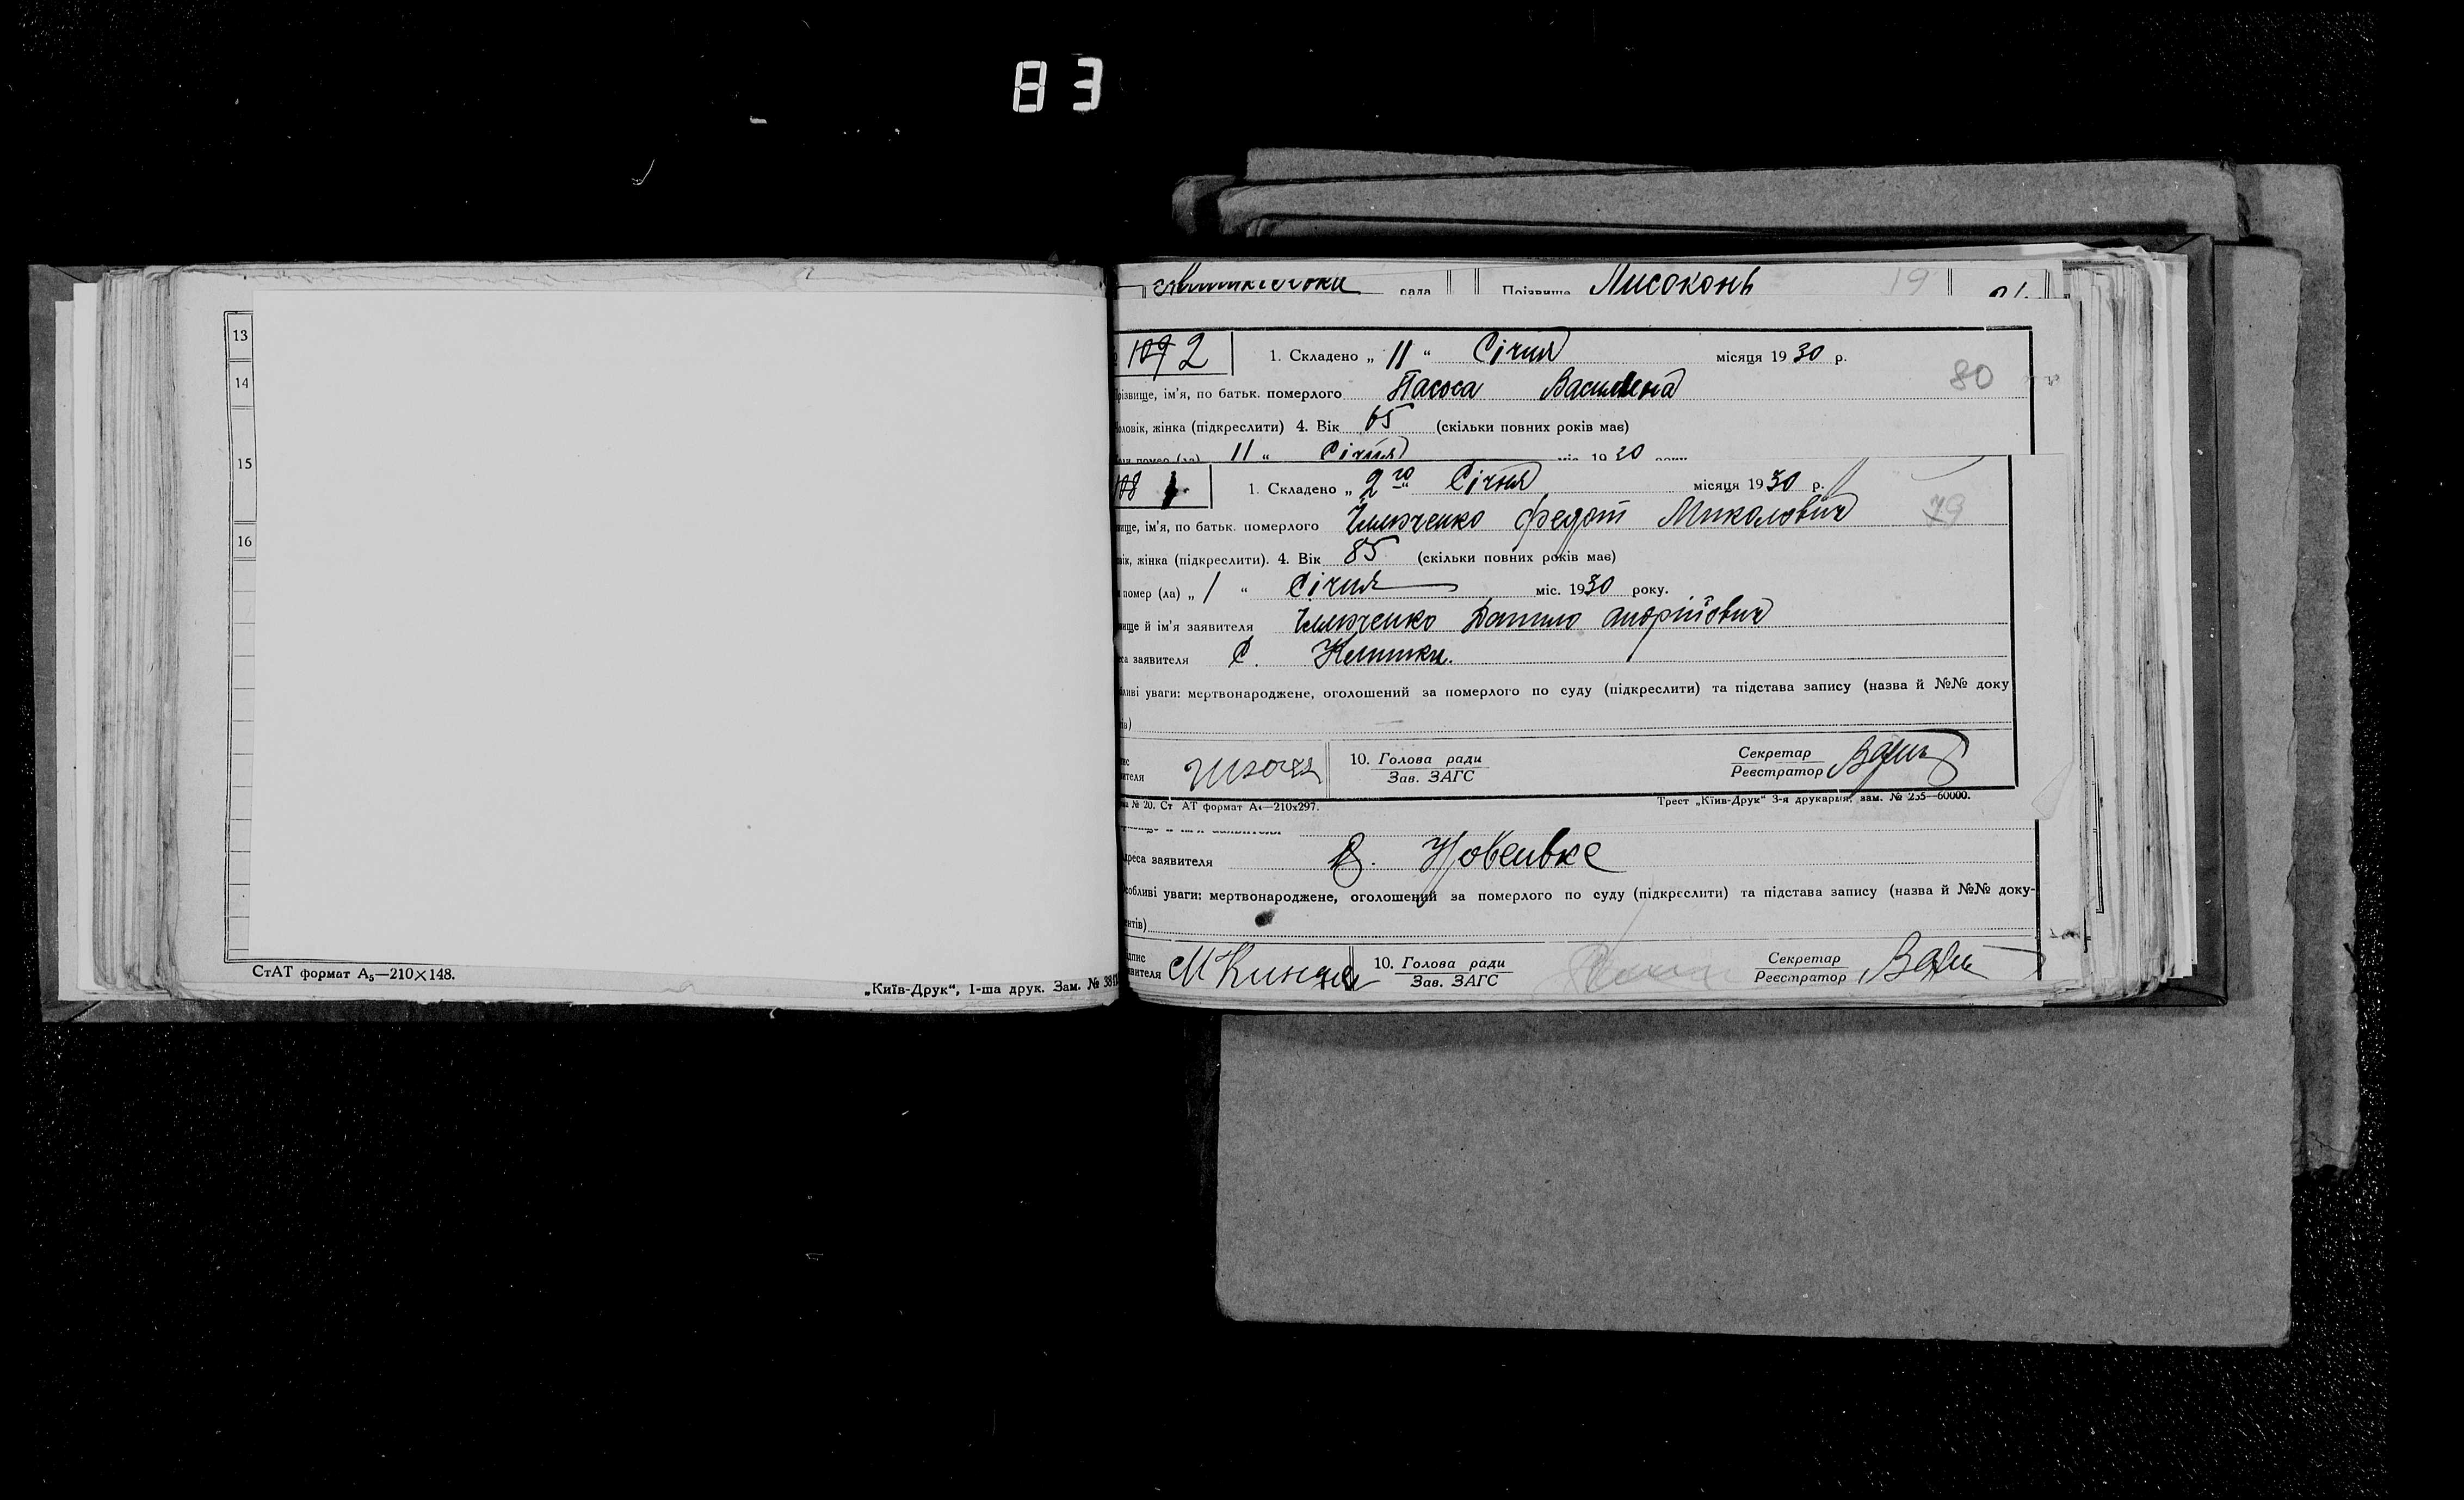 83
13
14
15
16
СтАТ формат А₅—210×148.
„Київ-Друк“, 1-ша друк. Зам. № 381
рада Прізвище Лисоконь 19
109 2 1. Складено „ 11 “ Січня місяця 1930 р.
різвище, ім'я, по батьк. померлого Пасока 80
оловік, жінка (підкреслити) 4. Вік 65 (скільки повних років має)
помер (ла) 11 “ Січня міс. 1930 року
108 1 1. Складено „ 2го “ Січня місяця 1930 р.
вище, ім'я, по батьк. померлого Федот Миколович 79
вік, жінка (підкреслити). 4. Вік 85 (скільки повних років має)
помер (ла) „ 1 “ Січня міс. 1930 року.
вище й ім'я заявителя Данило Андрійович
еса заявителя С. Клишки.
бливі уваги: мертвонароджене, оголошений за померлого по суду (підкреслити) та підстава запису (назва й №№ доку
ів)
ис
вителя
10. Голова ради
Зав. ЗАГС
Секретар
Реєстратор
№ 20. Ст АТ формат А₄—210х297.
Трест „Київ-Друк“ 3-я друкарня, зам. № 255—60000.
дреса заявителя
собливі уваги: мертвонароджене, оголошений за померлого по суду (підкреслити) та підстава запису (назва й №№ доку-
ентів)
дпис
вителя
10. Голова ради
Зав. ЗАГС
Секретар
Реєстратор